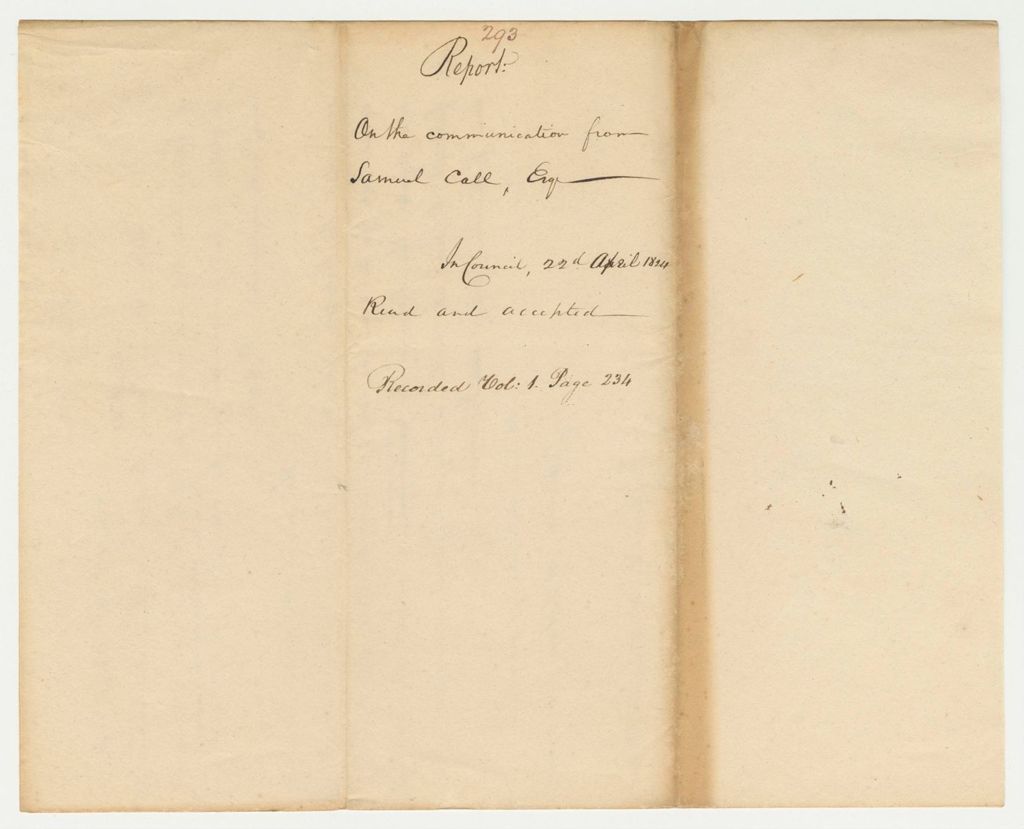 293
Report:
On the communication from
Samuel Call, Esqr
In Council, 22d April 1824
Read and accepted
Recorded Vol: 1. Page 234